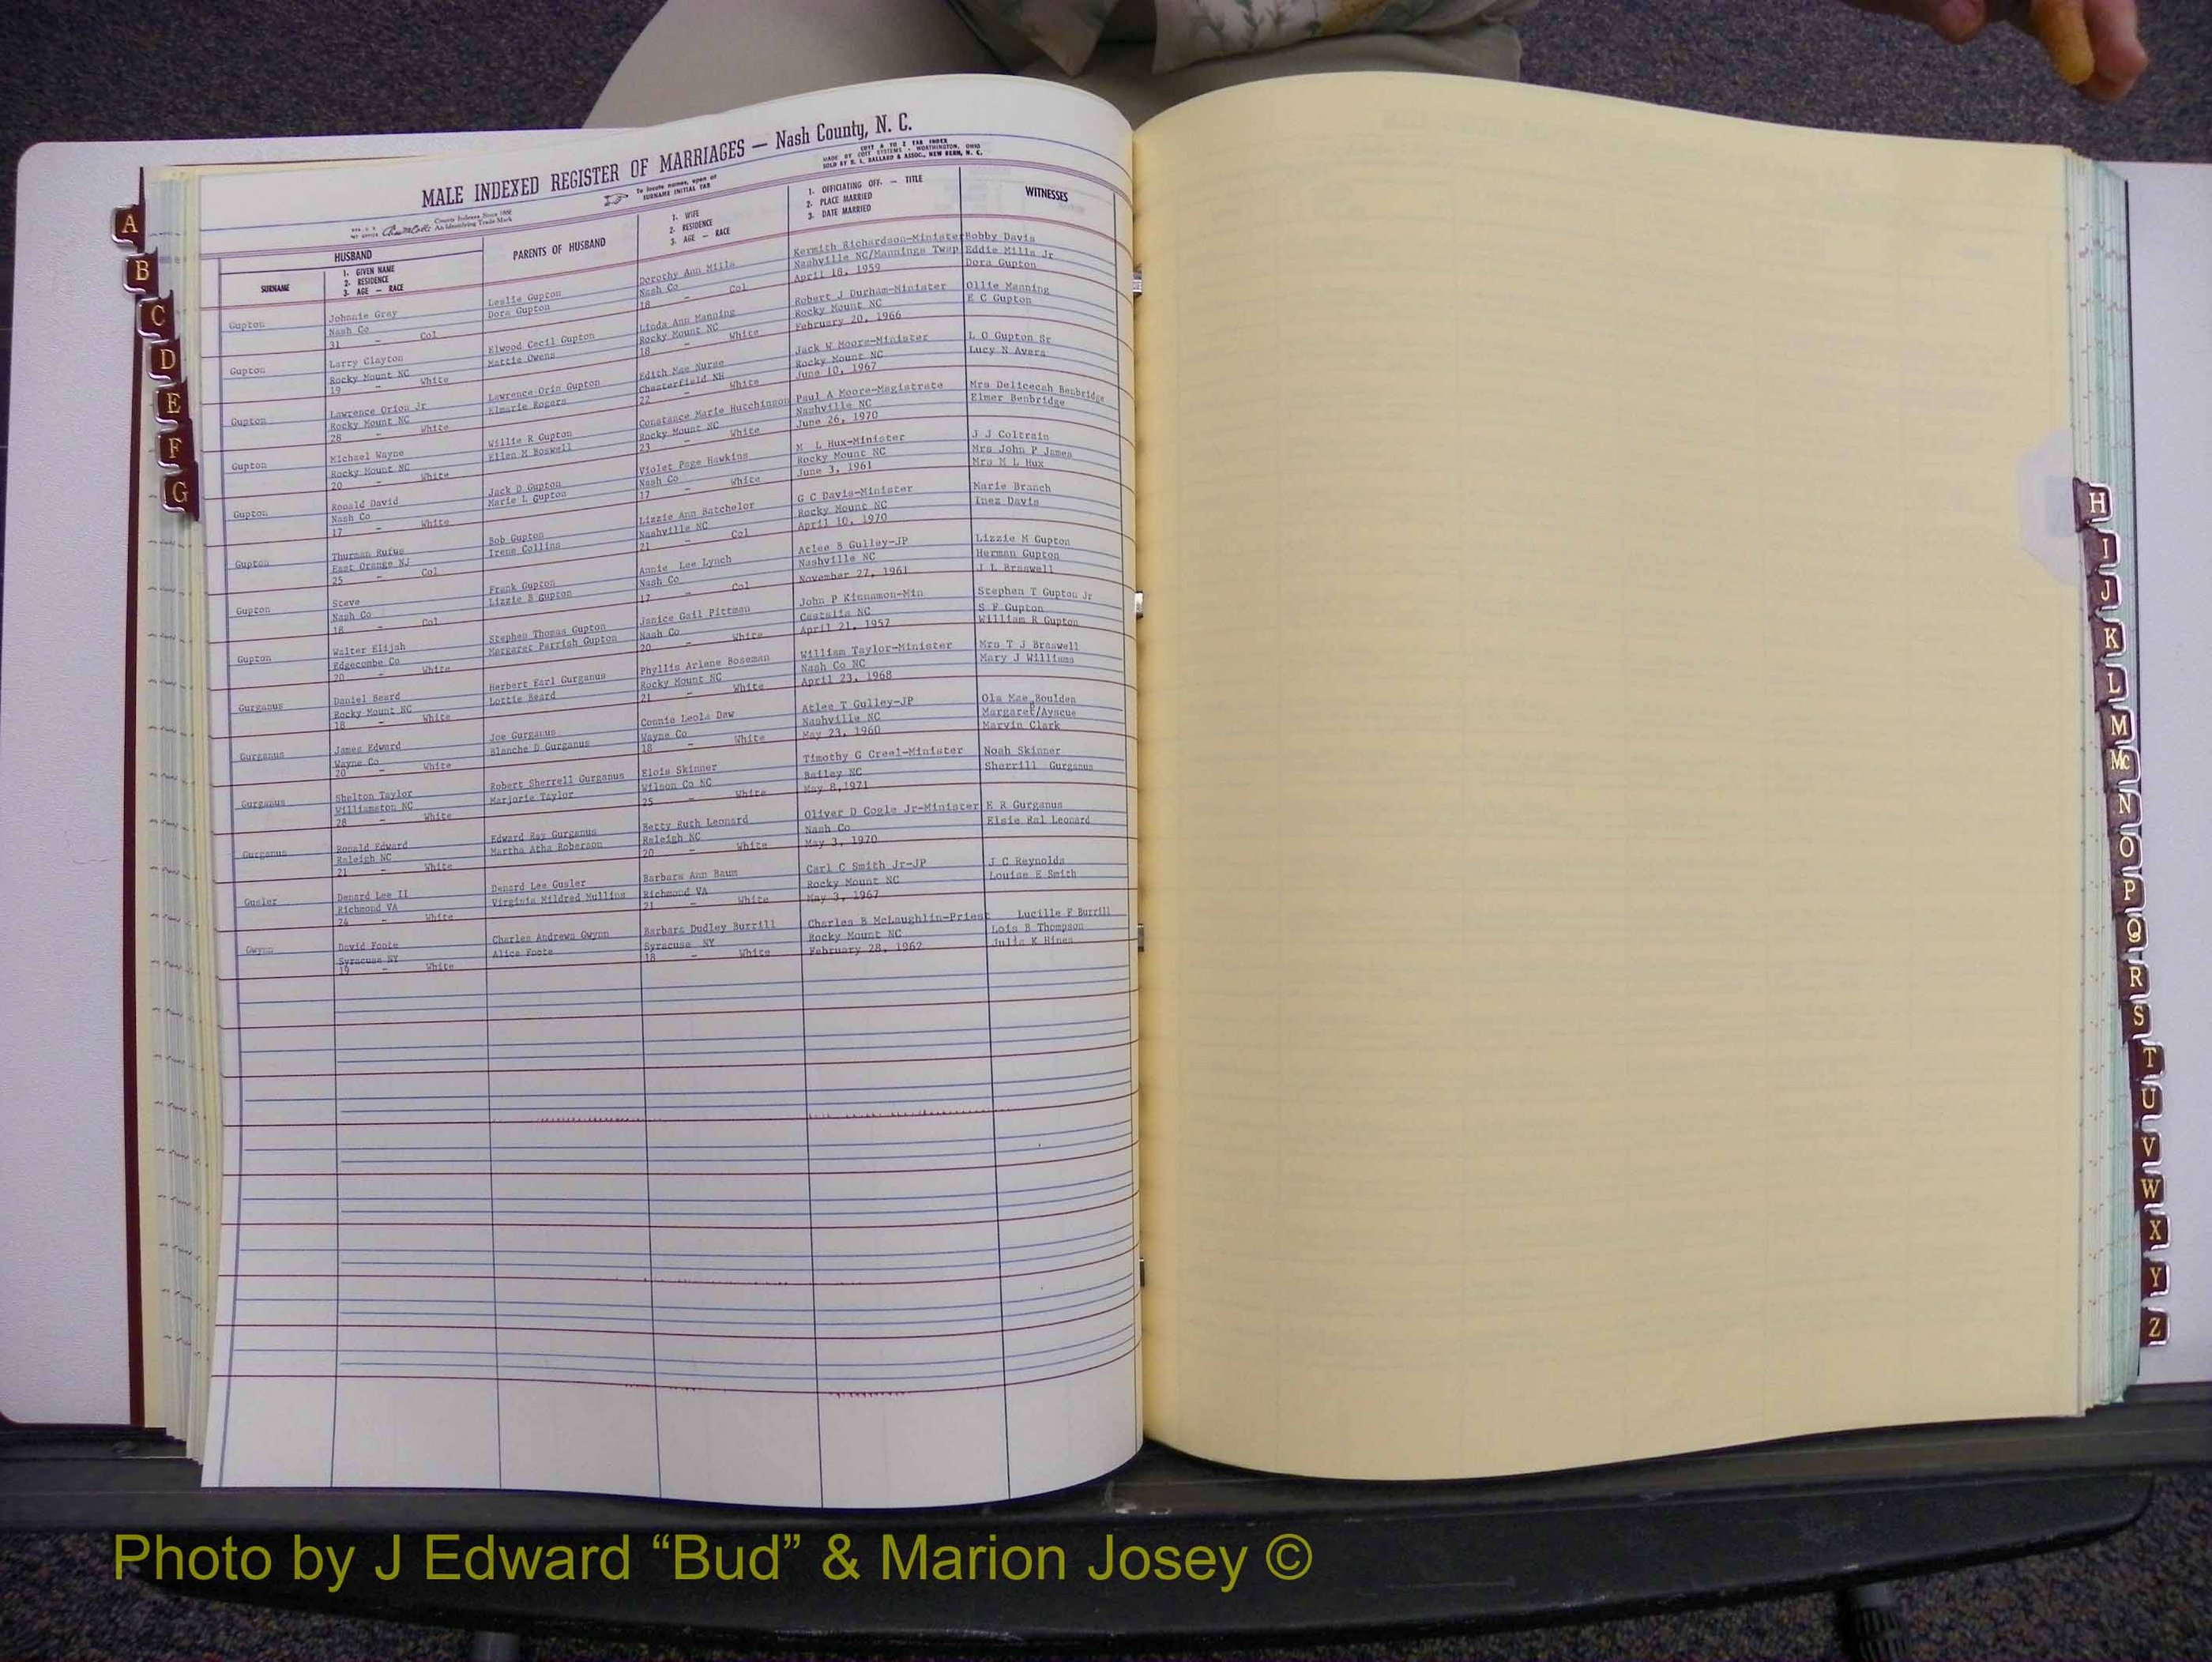 MALE INDEXED REGISTER OF MARRIAGES — Nash County, N. C.
County Indexes Since 1888
An Identifying Trade Mark
To locate names, open at
SURNAME INITIAL TAB
COTT A TO Z TAB INDEX
MADE BY COTT SYSTEMS - WORTHINGTON, OHIO
SOLD BY R. L. BALLARD & ASSOC., NEW BERN, N. C.
HUSBAND
SURNAME
1. GIVEN NAME
2. RESIDENCE
3. AGE — RACE
PARENTS OF HUSBAND
1. WIFE
2. RESIDENCE
3. AGE — RACE
1. OFFICIATING OFF. — TITLE
2. PLACE MARRIED
3. DATE MARRIED
WITNESSES
Gupton Johnnie Gray Leslie Gupton Dorothy Ann Mills Kermith Richardson-Minister Bobby Davis
Nash Co Dora Gupton Nash Co Nashville NC/Mannings Twsp Eddie Mills Jr
31 - Col 18 - Col April 18, 1959 Dora Gupton
Gupton Larry Clayton Elwood Cecil Gupton Linda Ann Manning Robert J Durham-Minister Ollie Manning
Rocky Mount NC Mattie Owens Rocky Mount NC Rocky Mount NC E C Gupton
19 - White 18 - White February 20, 1966
Gupton Lawrence Orion Jr Lawrence Orin Gupton Edith Mae Nurse Jack W Moore-Minister L O Gupton Sr
Rocky Mount NC Elmarie Rogers Chesterfield NH Rocky Mount NC Lucy N Avera
28 - White 22 - White June 10, 1967
Gupton Michael Wayne Willie R Gupton Constance Marie Hutchinson Paul A Moore-Magistrate Mrs Delicecah Benbridge
Rocky Mount NC Ellen M Boswell Rocky Mount NC Nashville NC Elmer Benbridge
20 - White 23 - White June 26, 1970
Gupton Ronald David Jack D Gupton Violet Page Hawkins M L Hux-Minister J J Coltrain
Nash Co Marie L Gupton Nash Co Rocky Mount NC Mrs John P James
17 - White 17 - White June 3, 1961 Mrs M L Hux
Gupton Thurman Rufus Bob Gupton Lizzie Ann Batchelor G C Davis-Minister Marie Branch
East Orange NJ Irene Collins Nashville NC Rocky Mount NC Inez Davis
25 - Col 21 - Col April 10, 1970
Gupton Steve Frank Gupton Annie Lee Lynch Atlee B Gulley-JP Lizzie M Gupton
Nash Co Lizzie B Gupton Nash Co Nashville NC Herman Gupton
18 - Col 17 - Col November 27, 1961 J L Braswell
Gupton Walter Elijah Stephen Thomas Gupton Janice Gail Pittman John P Kinnamon-Min Stephen T Gupton Jr
Edgecombe Co Margaret Parrish Gupton Nash Co Castalia NC S F Gupton
20 - White 20 - White April 21, 1957 William R Gupton
Gurganus Daniel Beard Herbert Earl Gurganus Phyllis Arlene Boseman William Taylor-Minister Mrs T J Braswell
Rocky Mount NC Lottie Beard Rocky Mount NC Nash Co NC Mary J Williams
18 - White 21 - White April 23, 1968
Gurganus James Edward Joe Gurganus Connie Leola Daw Atlee T Gulley-JP Ola Mae Boulden
Wayne Co Blanche D Gurganus Wayne Co Nashville NC Margaret/Ayscue
20 - White 18 - White May 23, 1960 Marvin Clark
Gurganus Shelton Taylor Robert Sherrell Gurganus Elois Skinner Timothy G Creel-Minister Noah Skinner
Williamston NC Marjorie Taylor Wilson Co NC Bailey NC Sherrill Gurganus
28 - White 25 - White May 8,1971
Gurganus Ronald Edward Edward Ray Gurganus Betty Ruth Leonard Oliver D Cogle Jr-Minister E R Gurganus
Raleigh NC Martha Atha Roberson Raleigh NC Nash Co Elsie Ral Leonard
21 - White 20 - White May 3, 1970
Gusler Denard Lee II Denard Lee Gusler Barbara Ann Baum Carl C Smith Jr-JP J C Reynolds
Richmond VA Virginia Mildred Mullins Richmond VA Rocky Mount NC Louise E Smith
24 - White 21 - White May 3, 1967
Gwynn David Foote Charles Andrews Gwynn Barbara Dudley Burrill Charles B McLaughlin-Priest Lucille F Burrill
Syracuse NY Alice Foote Syracuse NY Rocky Mount NC Lois B Thompson
19 - White 18 - White February 28, 1962 Julia K Hines
A
B
C
D
E
F
G
H
I
J
K
L
M
Mc
N
O
P
Q
R
S
T
U
V
W
X
Y
Z
Photo by J Edward “Bud” & Marion Josey ©